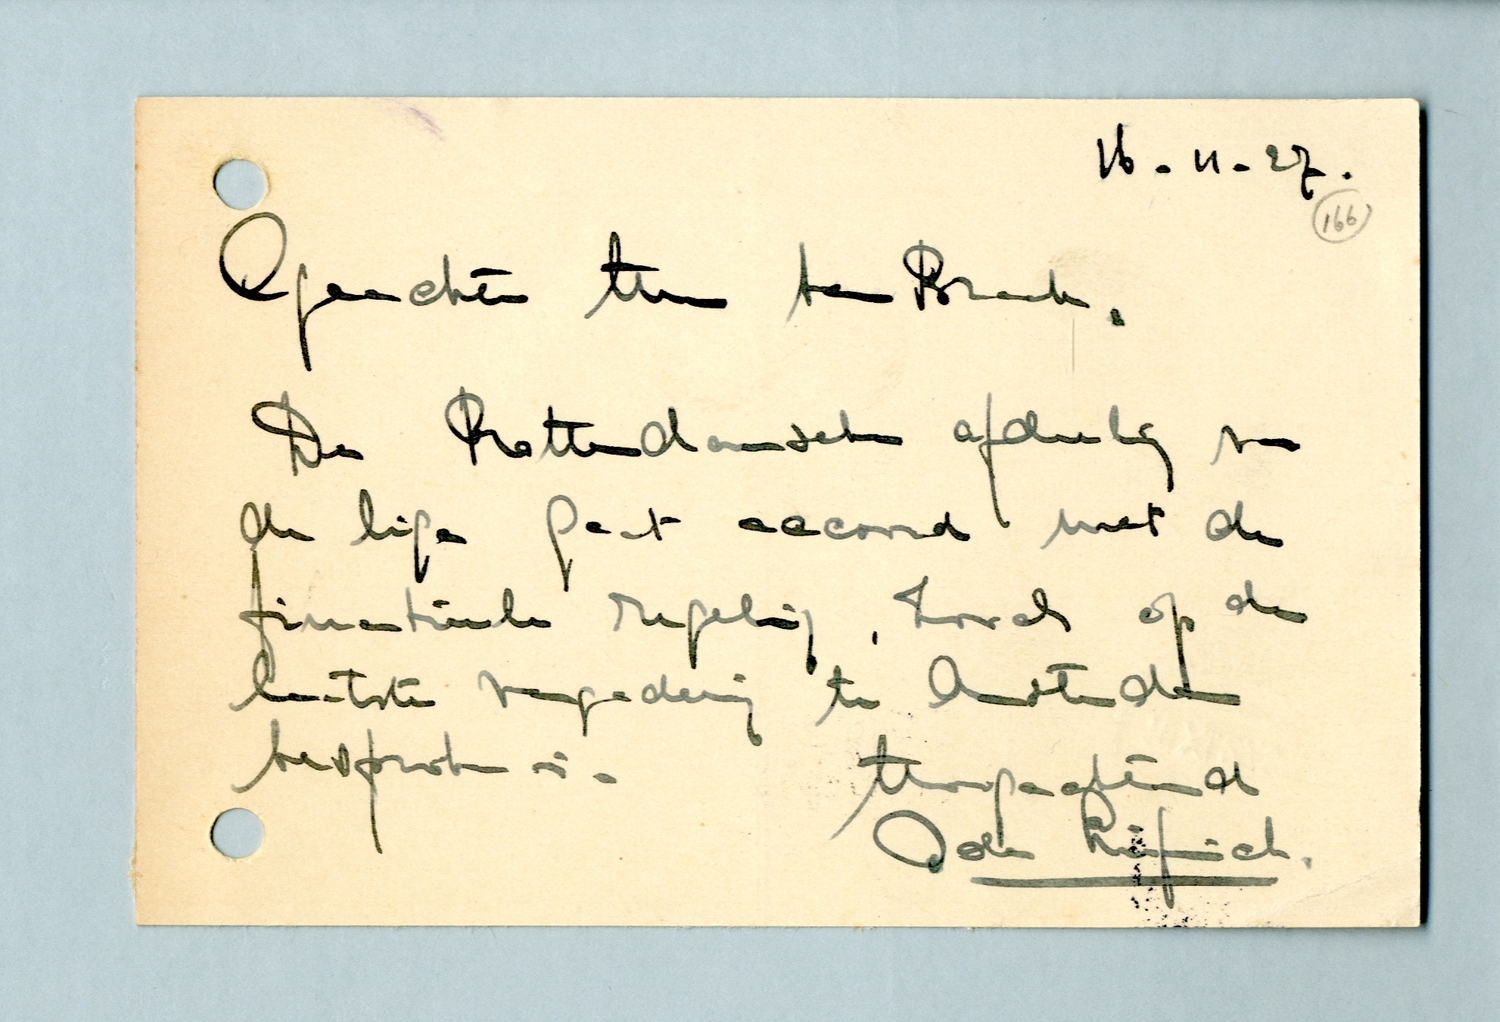 16-11-27.
166
Geachte Heer ter Braak,
De Rotterdamsche afdeeling van
de liga gaat accoord met de
financieele regeling, zooals op de
laatste vergadering te Amsterdam
besproken is.
Hoogachtend